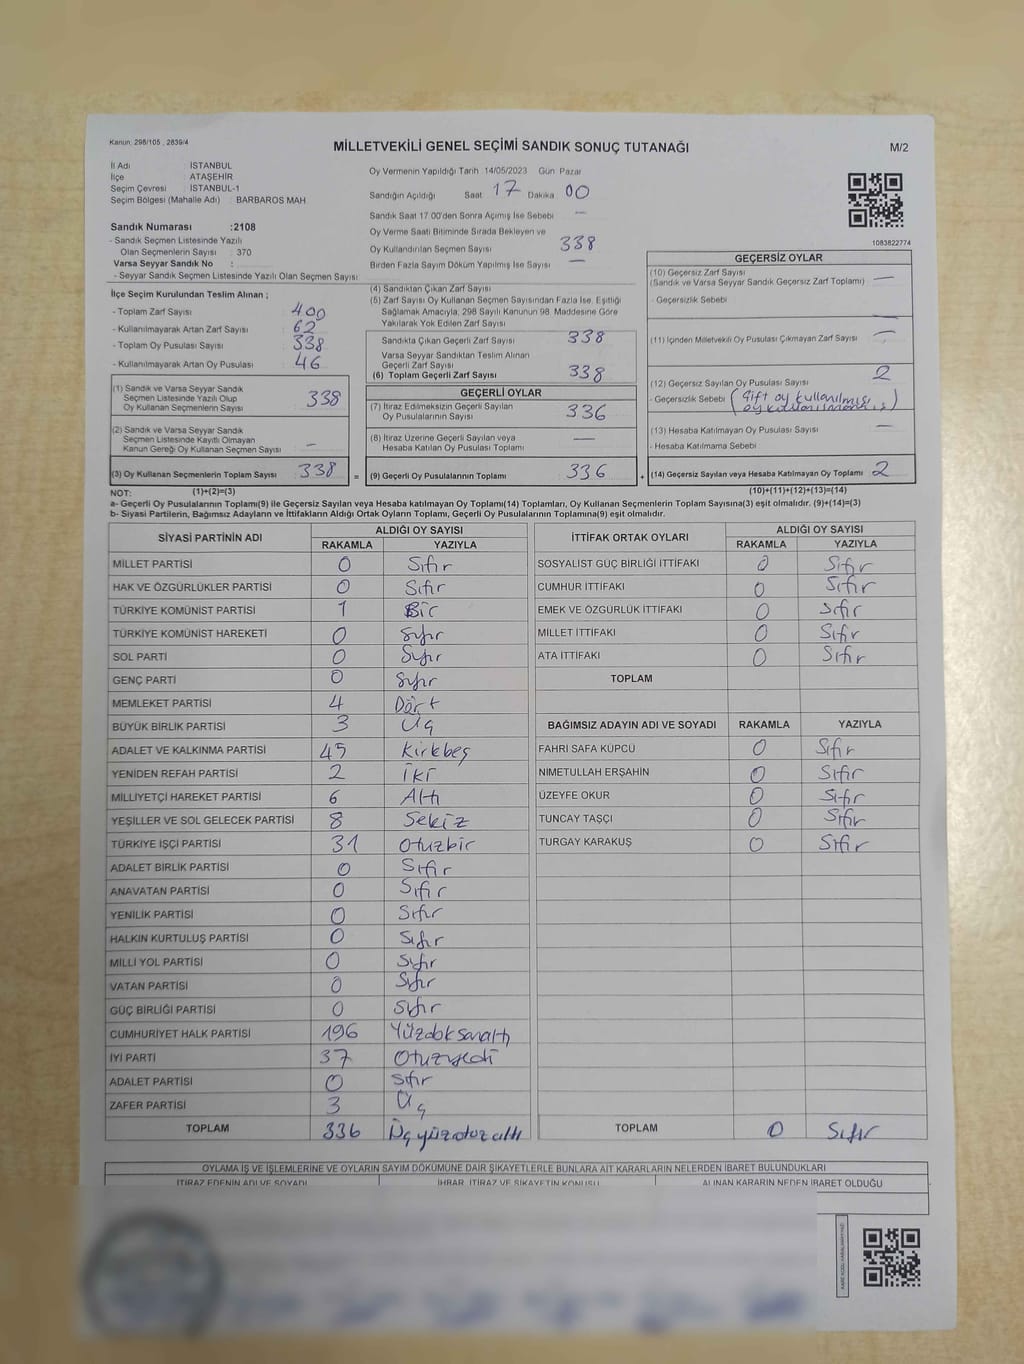 Kanun: 298/105 , 2839/4
MİLLETVEKİLİ GENEL SEÇİMİ SANDIK SONUÇ TUTANAĞI
M/2
İl Adı : İSTANBUL
İlçe : ATAŞEHİR
Seçim Çevresi : İSTANBUL-1
Seçim Bölgesi (Mahalle Adı) : BARBAROS MAH
Oy Vermenin Yapıldığı Tarih 14/05/2023 Gün Pazar
Sandığın Açıldığı Saat 17 Dakika 00
Sandık Saat 17 00'den Sonra Açımış İse Sebebi —
Sandık Numarası :2108
- Sandık Seçmen Listesinde Yazılı
Olan Seçmenlerin Sayısı : 370
Varsa Seyyar Sandık No :
- Seyyar Sandık Seçmen Listesinde Yazılı Olan Seçmen Sayısı:
Oy Verme Saati Bitiminde Sırada Bekleyen ve
Oy Kullandırılan Seçmen Sayısı 338
Birden Fazla Sayım Döküm Yapılmış İse Sayısı —
1083822774
İlçe Seçim Kurulundan Teslim Alınan ;
- Toplam Zarf Sayısı : 400
- Kullanılmayarak Artan Zarf Sayısı : 62
- Toplam Oy Pusulası Sayısı : 338
- Kullanılmayarak Artan Oy Pusulası : 46
(1) Sandık ve Varsa Seyyar Sandık
Seçmen Listesinde Yazılı Olup
Oy Kullanan Seçmenlerin Sayısı 338
(2) Sandık ve Varsa Seyyar Sandık
Seçmen Listesinde Kayıtlı Olmayan
Kanun Gereği Oy Kullanan Seçmen Sayısı —
(3) Oy Kullanan Seçmenlerin Toplam Sayısı 338 =
(4) Sandıktan Çıkan Zarf Sayısı
(5) Zarf Sayısı Oy Kullanan Seçmen Sayısından Fazla İse, Eşitliği
Sağlamak Amacıyla; 298 Sayılı Kanunun 98. Maddesine Göre
Yakılarak Yok Edilen Zarf Sayısı
Sandıkta Çıkan Geçerli Zarf Sayısı 338
Varsa Seyyar Sandıktan Teslim Alınan
Geçerli Zarf Sayısı
(6) Toplam Geçerli Zarf Sayısı 338
GEÇERLİ OYLAR
(7) İtiraz Edilmeksizin Geçerli Sayılan
Oy Pusulalarının Sayısı 336
(8) İtiraz Üzerine Geçerli Sayılan veya
Hesaba Katılan Oy Pusulası Toplamı —
(9) Geçerli Oy Pusulalarının Toplamı 336 +
GEÇERSİZ OYLAR
(10) Geçersiz Zarf Sayısı
(Sandık ve Varsa Seyyar Sandık Geçersiz Zarf Toplamı) —
- Geçersizlik Sebebi
(11) İçinden Milletvekili Oy Pusulası Çıkmayan Zarf Sayısı —
(12) Geçersiz Sayılan Oy Pusulası Sayısı 2
- Geçersizlik Sebebi (Çift oy kullanılmış
(13) Hesaba Katılmayan Oy Pusulası Sayısı —
- Hesaba Katılmama Sebebi
(14) Geçersiz Sayılan veya Hesaba Katılmayan Oy Toplamı 2
NOT: (1)+(2)=(3) (10)+(11)+(12)+(13)=(14)
a- Geçerli Oy Pusulalarının Toplamı(9) ile Geçersiz Sayılan veya Hesaba katılmayan Oy Toplamı(14) Toplamları, Oy Kullanan Seçmenlerin Toplam Sayısına(3) eşit olmalıdır. (9)+(14)=(3)
b- Siyasi Partilerin, Bağımsız Adayların ve İttifakların Aldığı Ortak Oyların Toplamı, Geçerli Oy Pusulalarının Toplamına(9) eşit olmalıdır.
SİYASİ PARTİNİN ADI ALDIĞI OY SAYISI
RAKAMLA YAZIYLA
MİLLET PARTİSİ 0 Sıfır
HAK VE ÖZGÜRLÜKLER PARTİSİ 0 Sıfır
TÜRKİYE KOMÜNİST PARTİSİ 1 Bir
TÜRKİYE KOMÜNİST HAREKETİ 0 Sıfır
SOL PARTİ 0 Sıfır
GENÇ PARTİ 0 Sıfır
MEMLEKET PARTİSİ 4 Dört
BÜYÜK BİRLİK PARTİSİ 3 Üç
ADALET VE KALKINMA PARTİSİ 45 Kırkbeş
YENİDEN REFAH PARTİSİ 2 İki
MİLLİYETÇİ HAREKET PARTİSİ 6 Altı
YEŞİLLER VE SOL GELECEK PARTİSİ 8 Sekiz
TÜRKİYE İŞÇİ PARTİSİ 31 Otuzbir
ADALET BİRLİK PARTİSİ 0 Sıfır
ANAVATAN PARTİSİ 0 Sıfır
YENİLİK PARTİSİ 0 Sıfır
HALKIN KURTULUŞ PARTİSİ 0 Sıfır
MİLLİ YOL PARTİSİ 0 Sıfır
VATAN PARTİSİ 0 Sıfır
GÜÇ BİRLİĞİ PARTİSİ 0 Sıfır
CUMHURİYET HALK PARTİSİ 196 Yüzdoksanaltı
İYİ PARTİ 37 Otuzyedi
ADALET PARTİSİ 0 Sıfır
ZAFER PARTİSİ 3 Üç
TOPLAM 336 Üçyüzotuzaltı
İTTİFAK ORTAK OYLARI ALDIĞI OY SAYISI
RAKAMLA YAZIYLA
SOSYALİST GÜÇ BİRLİĞİ İTTİFAKI 0 Sıfır
CUMHUR İTTİFAKI 0 Sıfır
EMEK VE ÖZGÜRLÜK İTTİFAKI 0 Sıfır
MİLLET İTTİFAKI 0 Sıfır
ATA İTTİFAKI 0 Sıfır
TOPLAM
BAĞIMSIZ ADAYIN ADI VE SOYADI RAKAMLA YAZIYLA
FAHRİ SAFA KÜPCÜ 0 Sıfır
NİMETULLAH ERŞAHİN 0 Sıfır
ÜZEYFE OKUR 0 Sıfır
TUNCAY TAŞÇI 0 Sıfır
TURGAY KARAKUŞ 0 Sıfır
TOPLAM 0 Sıfır
OYLAMA İŞ VE İŞLEMLERİNE VE OYLARIN SAYIM DÖKÜMÜNE DAİR ŞİKAYETLERLE BUNLARA AİT KARARLARIN NELERDEN İBARET BULUNDUKLARI
İTİRAZ EDENİN ADI VE SOYADI İHBAR, İTİRAZ VE ŞİKAYETİN KONUSU ALINAN KARARIN NEDEN İBARET OLDUĞU